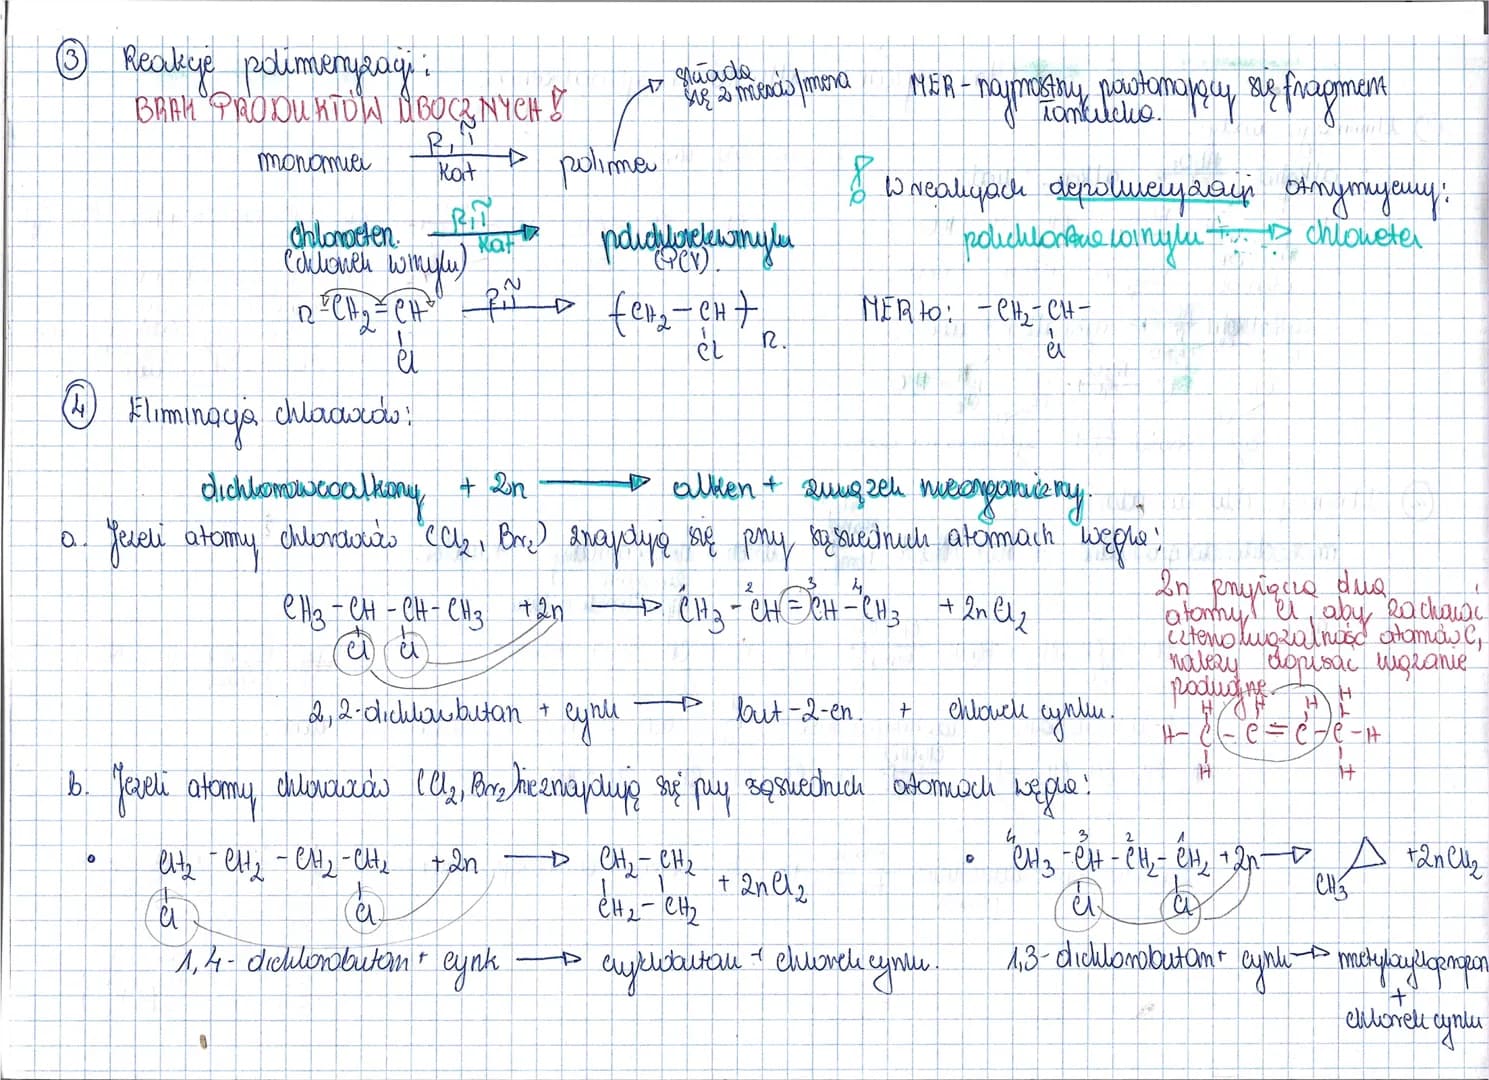 3 Reakcje polimeryzacji:
BRAK PRODUKTÓW UBOCZNYCH!
składa
się z merów/mera
MER - najprostszy, powtarzający się fragment
łańcucha.
monomer p, T kat → polimer
! W reakcjach depolimeryzacji otrzymujemy:
chloroeten p, T kat → polichlorek winylu
(chlorek winylu) (PCV).
polichlorek winylu → chloroeten
n CH2=CH p, T → (CH2-CH)n.
Cl Cl
MER to: -CH2-CH-
Cl
4 Eliminacja chlorowców:
dichlorowcoalkany + Zn → alken + związek nieorganiczny.
a. Jeżeli atomy chlorowców (Cl2, Br2) znajdują się przy sąsiednich atomach węgla:
CH3-CH-CH-CH3 + Zn → 1CH3-2CH=3CH-4CH3 + ZnCl2
Cl Cl
2,2-dichlorobutan + cynk → but-2-en. + chlorek cynku.
Zn przyłącza dwa
atomy Cl, aby zachować
czterowiązalność atomów C,
należy dopisać wiązanie
podwójne.
H H H H
H-C-C=C-C-H
H H
b. Jeżeli atomy chlorowców (Cl2, Br2) nie znajdują się przy sąsiednich atomach węgla:
• CH2-CH2-CH2-CH2 + Zn → CH2-CH2 + ZnCl2
Cl Cl CH2-CH2
1,4-dichlorobutan + cynk → cyklobutan + chlorek cynku.
• 4CH3-3CH-2CH2-1CH2 + Zn → CH3 + ZnCl2
Cl Cl
1,3-dichlorobutan + cynk → metylocyklopropan
+
chlorek cynku